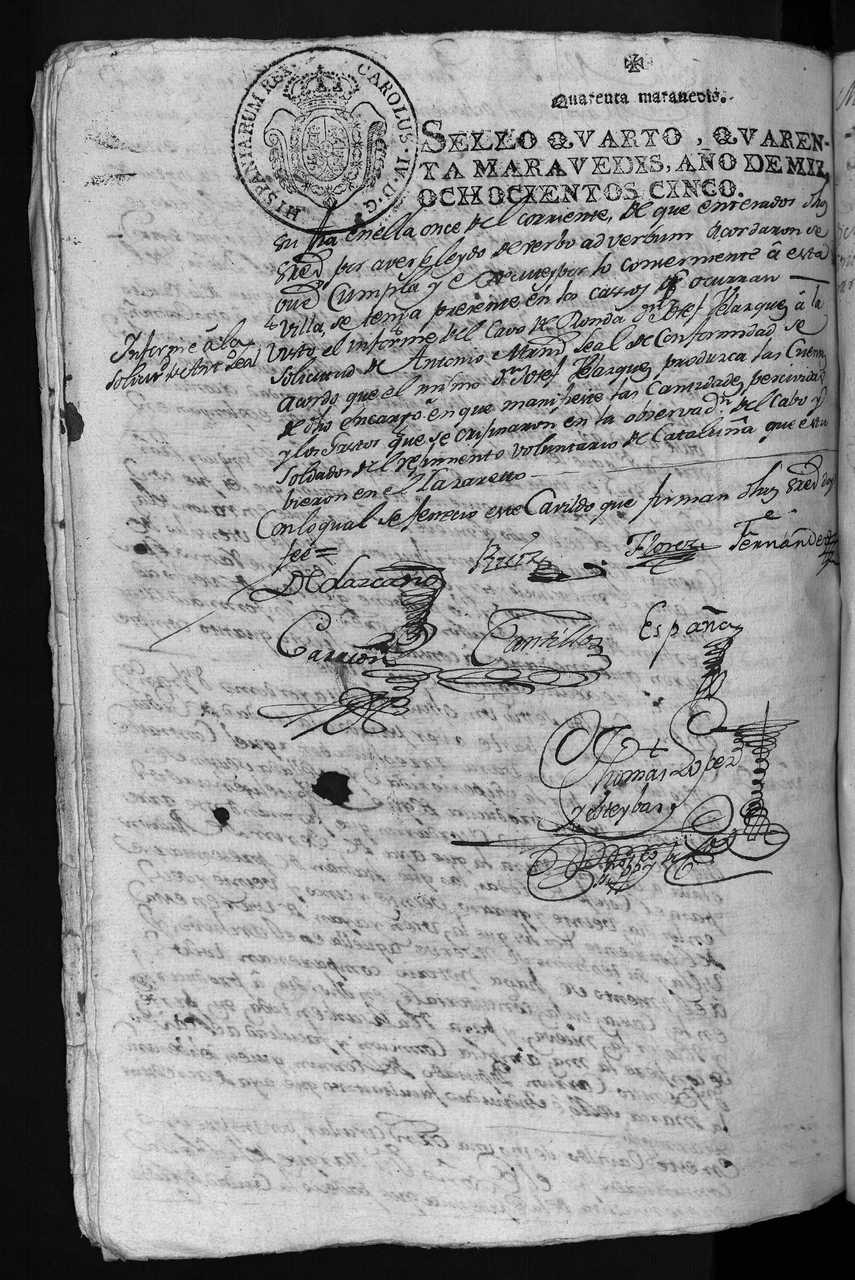 CAROLUS·IV·D·G·HISPANIARUM REX
Quarenta maravedis.
SELLO QVARTO, QVAREN-
TA MARAVEDIS, AÑO DE MIL
OCHOCIENTOS CINCO.
su fha en ella once del corriente, de que enterados Shas
por aver leydo de verbo ad verbum Acordaron se
que Cumpla y por lo conserniente â esta
Villa se tenga presente en los cassos qe ocurran
Informe â la
solicitud de Ant. Leal
Visto el informe del Cavo de Ronda Dn Josef Velazquez â la
solicitud de Antonio Leal de Conformidad se
Acordo que el mismo Dn Josef Velazquez produzca las Cuentas
de dho encargo en que manifieste las Cantidades percividas
y los Gastos que se orijinaron en la observadn del Cabo y
Soldados del rejimento voluntario de Cataluña que estu
bieron en el Lazaretto
Con lo qual se fenecio este Cavildo que firman Shas doy
fee=
Ruiz
Florez
Fernandez
Carrion
Cantillo
España
Thomas Lopez
y esteybar